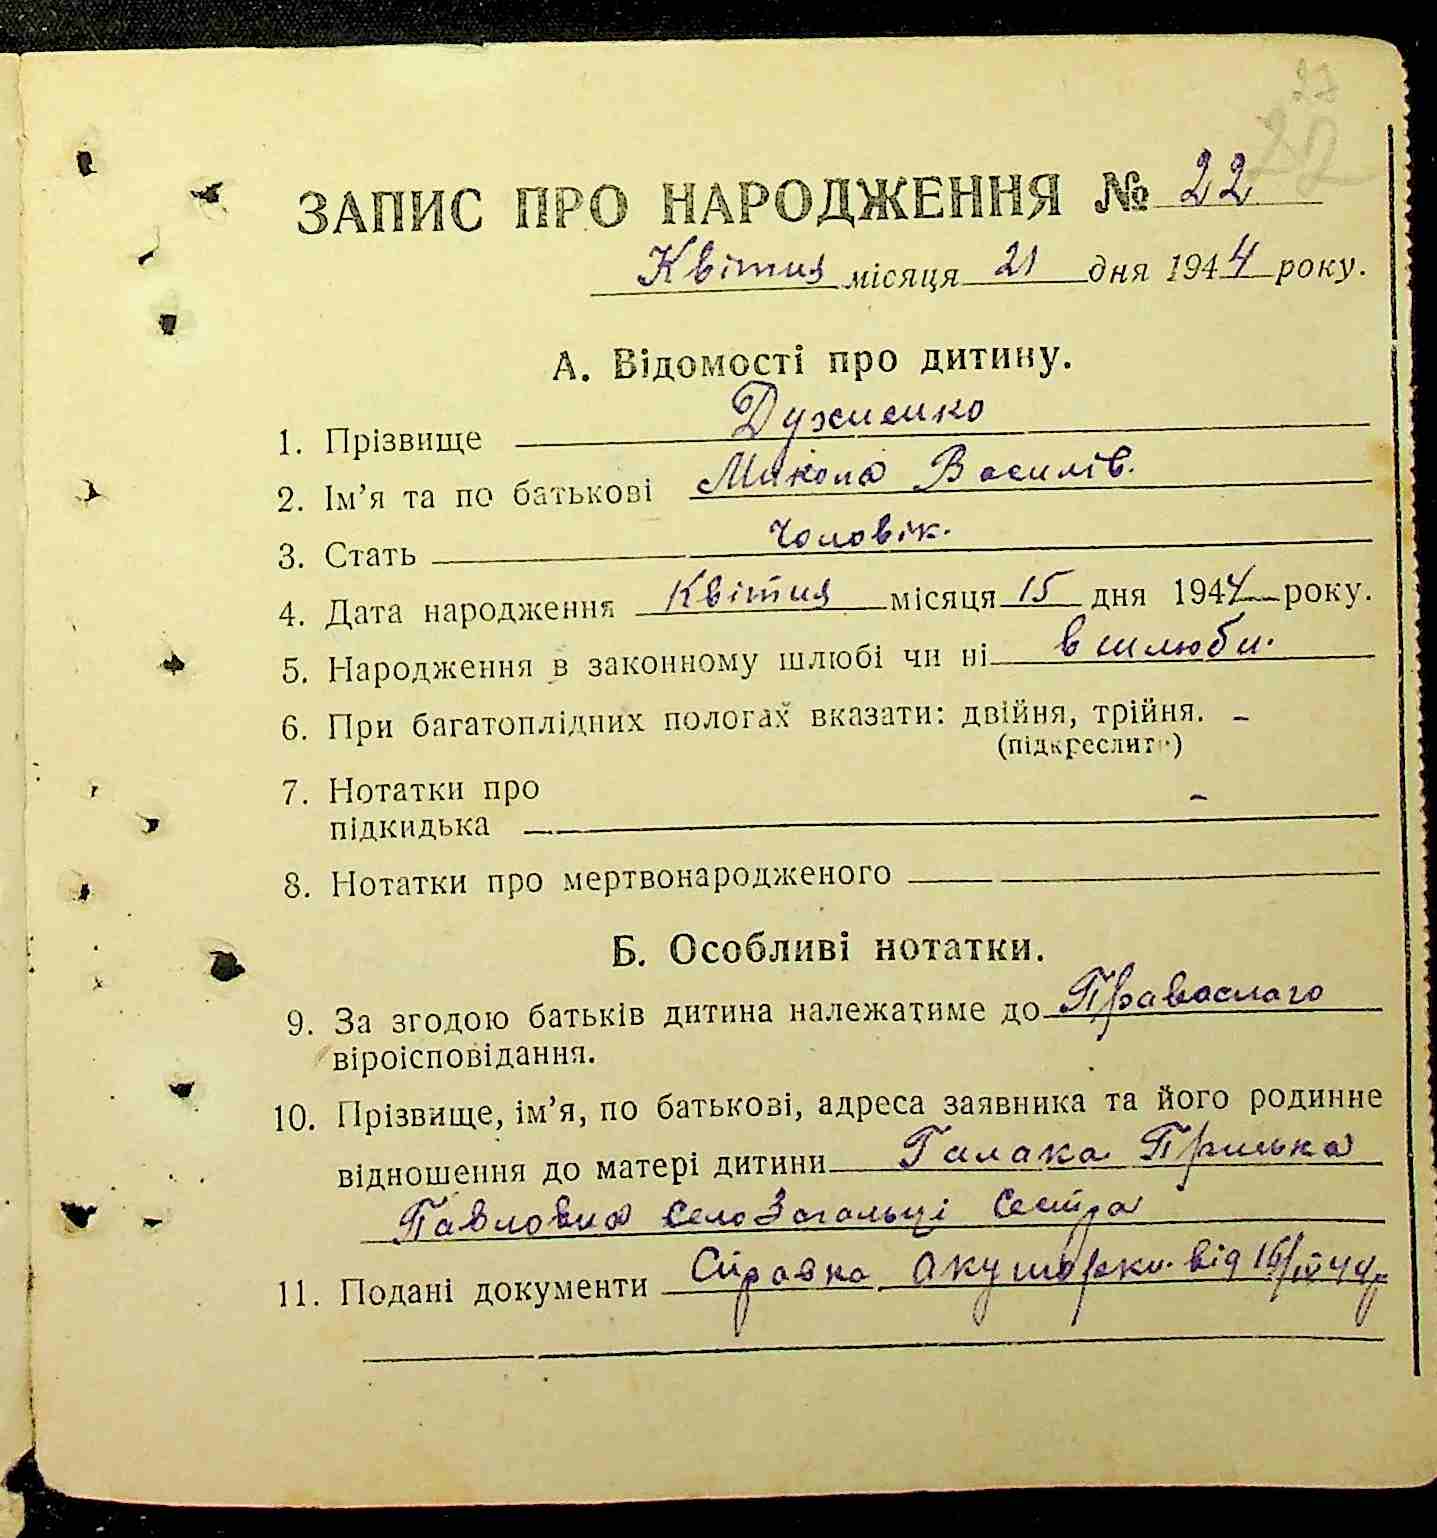 27
22
ЗАПИС ПРО НАРОДЖЕННЯ № 22
Квітня місяця 21 дня 1944 року.
А. Відомості про дитину.
1. Прізвище Дужченко
2. Ім’я та по батькові Микола Василів.
3. Стать Чоловік.
4. Дата народження Квітня місяця 15 дня 1944 року.
5. Народження в законному шлюбі чи ні в шлюби.
6. При багатоплідних пологах вказати: двійня, трійня. -
(підкреслити)
7. Нотатки про -
підкидька
8. Нотатки про мертвонародженого
Б. Особливі нотатки.
9. За згодою батьків дитина належатиме до Правослаго
віроісповідання.
10. Прізвище, ім’я, по батькові, адреса заявника та його родинне
відношення до матері дитини Галака Прилька
Павловна село Загальці Сестра
11. Подані документи Справка акушорки від 16/IV 44р